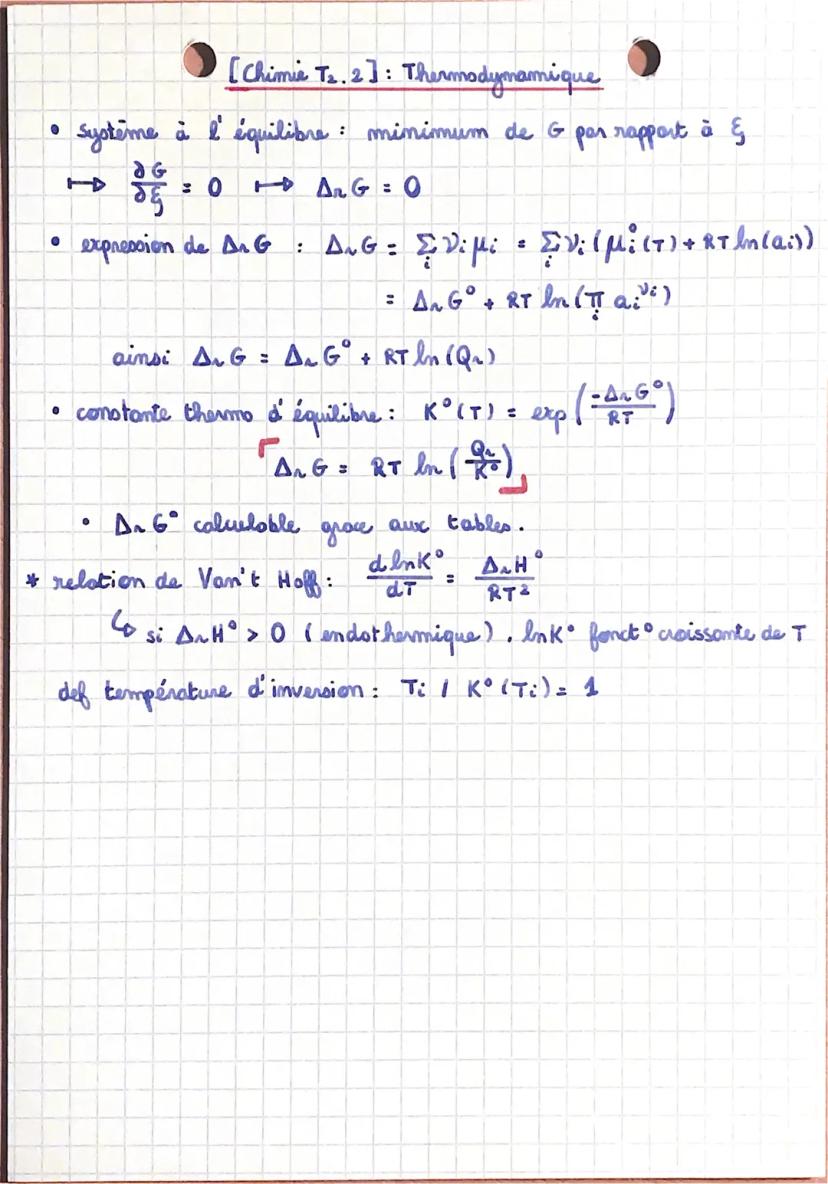 [Chimie T2.2] : Thermodynamique
• système à l'équilibre : minimum de G par rapport à ξ
↦ ∂G/∂ξ = 0 ↦ ΔrG = 0
• expression de ΔrG : ΔrG = Σi νi μi = Σi νi (μi°(T) + RT ln(ai))
= ΔrG° + RT ln(Πi ai^νi)
ainsi ΔrG = ΔrG° + RT ln(Qr)
• constante thermo d'équilibre : K°(T) = exp(-ΔrG°/RT)
ΔrG = RT ln(Qr/K°)
• ΔrG° calculable grace aux tables.
* relation de Van't Hoff : d lnK°/dT = ΔrH°/RT²
↳ si ΔrH° > 0 (endothermique), lnK° fonct° croissante de T
def température d'inversion : Ti / K°(Ti) = 1